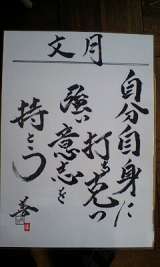 文月
自分自身に
打ち克つ
強い意志を
持とう